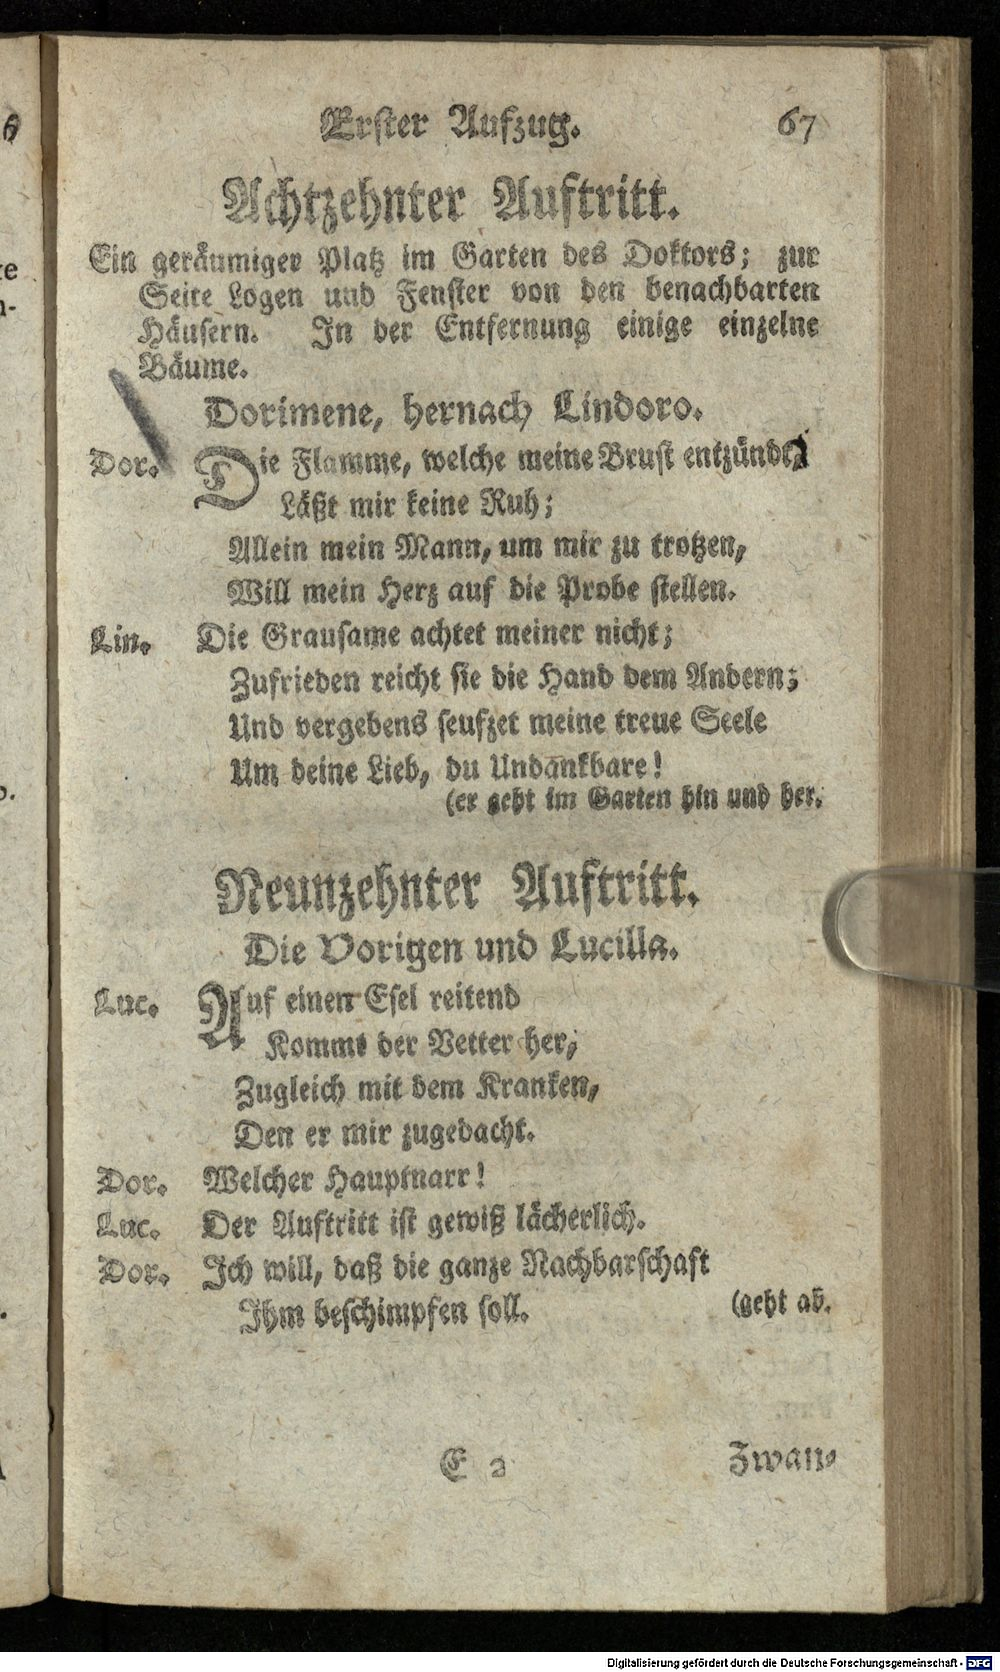 Erster Aufzug. 67
Achtzehnter Auftritt.
Ein geräumiger Platz im Garten des Doktors; zur
Seite Logen und Fenster von den benachbarten
Häusern. In der Entfernung einige einzelne
Bäume.
Dorimene, hernach Lindoro.
Dor. Die Flamme, welche meine Brust entzündt,
Läßt mir keine Ruh;
Allein mein Mann, um mir zu trotzen,
Will mein Herz auf die Probe stellen.
Lin. Die Grausame achtet meiner nicht;
Zufrieden reicht sie die Hand dem Andern;
Und vergebens seufzet meine treue Seele
Um deine Lieb, du Undankbare!
(er geht im Garten hin und her.
Neunzehnter Auftritt.
Die Vorigen und Lucilla.
Luc. Auf einen Esel reitend
Kommt der Vetter her,
Zugleich mit dem Kranken,
Den er mir zugedacht.
Dor. Welcher Hauptnarr!
Luc. Der Auftritt ist gewiß lächerlich.
Dor. Ich will, daß die ganze Nachbarschaft
Ihm beschimpfen soll. (geht ab.
E 2 Zwan-
Digitalisierung gefördert durch die Deutsche Forschungsgemeinschaft - DFG